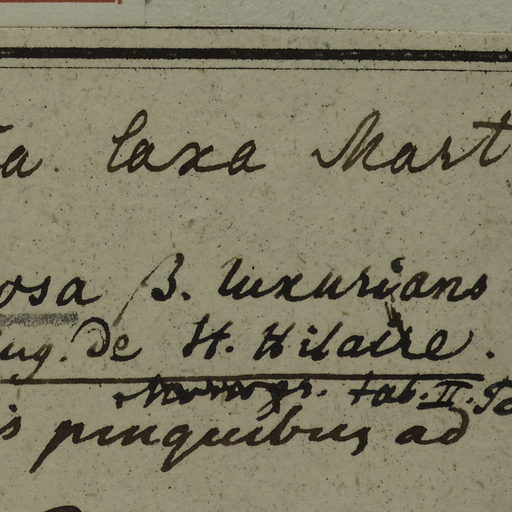 ta laxa Mart
osa β. luxurians
ug. De St. Hilaire.
tab. II.
is pinguibus ad